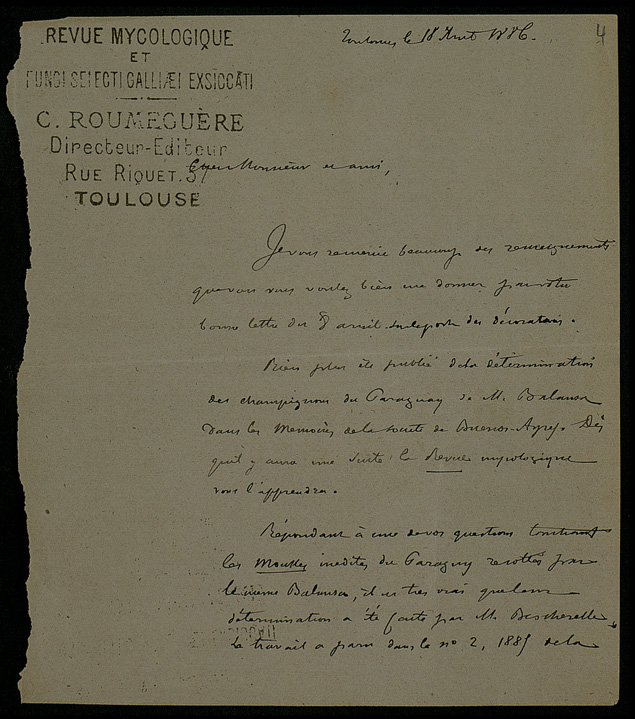 REVUE MYCOLOGIQUE
ET
FUNGI SELECTI GALLIÆI EXSICCATI
C. ROUMEGUÈRE
Directeur-Editeur
RUE RIQUET. 37
TOULOUSE
Toulouse le 18 1886.
4
Cher Monsieur et ami,
Je vous remercie beaucoup des renseignements
que vous voulez bien me donner par votre
bonne lettre du 8 des
Rien plus été publié de la détermination
des champignons du Paraguay de M. Balansa
dans les Memoires de la société de Buenos-Ayres. Dès
qu'il y aura une suite la Revue mycologique
vous l'apprendra.
Répondant à une de vos questions touchant
les Mousses inedites du Paraguay recoltés par
le même Balansa, il est tres vrai que leur
détermination a été faite par M. Bescherelle,
le travail a paru dans le no 2, 1885 de la